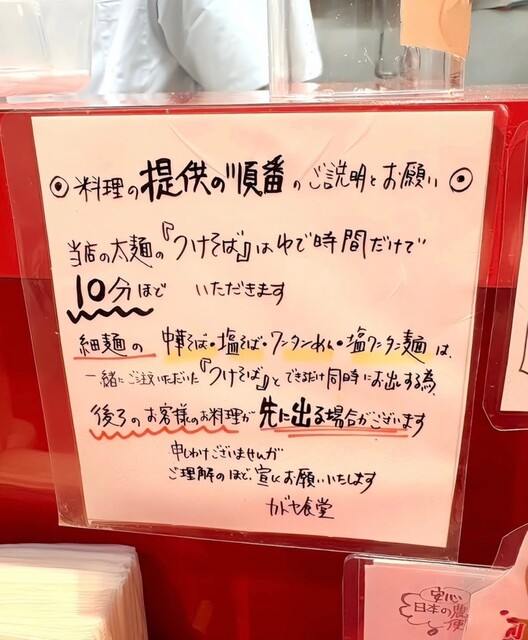 ◉料理の提供の順番のご説明とお願い◉
当店の太麺の『つけそば』はゆで時間だけで
10分ほど いただきます
細麺の 中華そば・塩そば・ワンタンめん・塩ワンタン麺は、
一緒にご注文いただいた『つけそば』とできるだけ同時にお出しする為、
後ろのお客様のお料理が先に出る場合がございます
申しわけございませんが
ご理解のほど、宜しくお願いいたします
カドヤ食堂
安心
日本の農
便